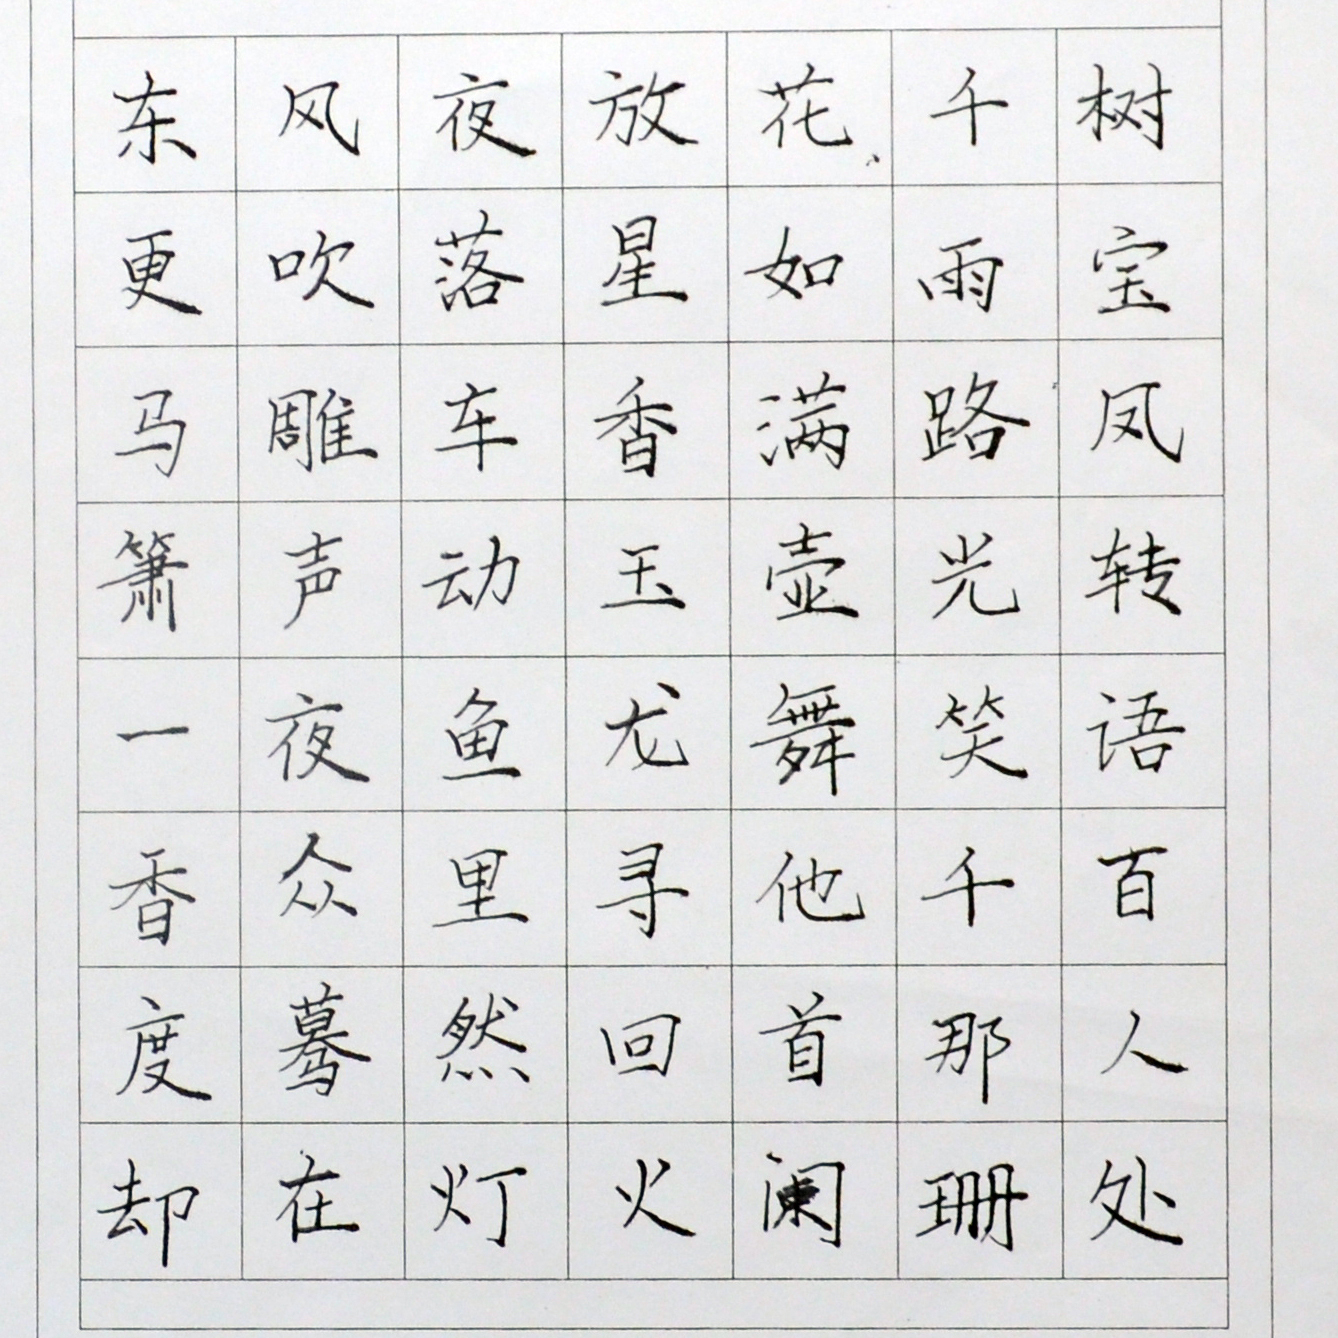 东风夜放花千树
更吹落星如雨宝
马雕车香满路凤
箫声动玉壶光转
一夜鱼龙舞笑语
香众里寻他千百
度蓦然回首那人
却在灯火阑珊处